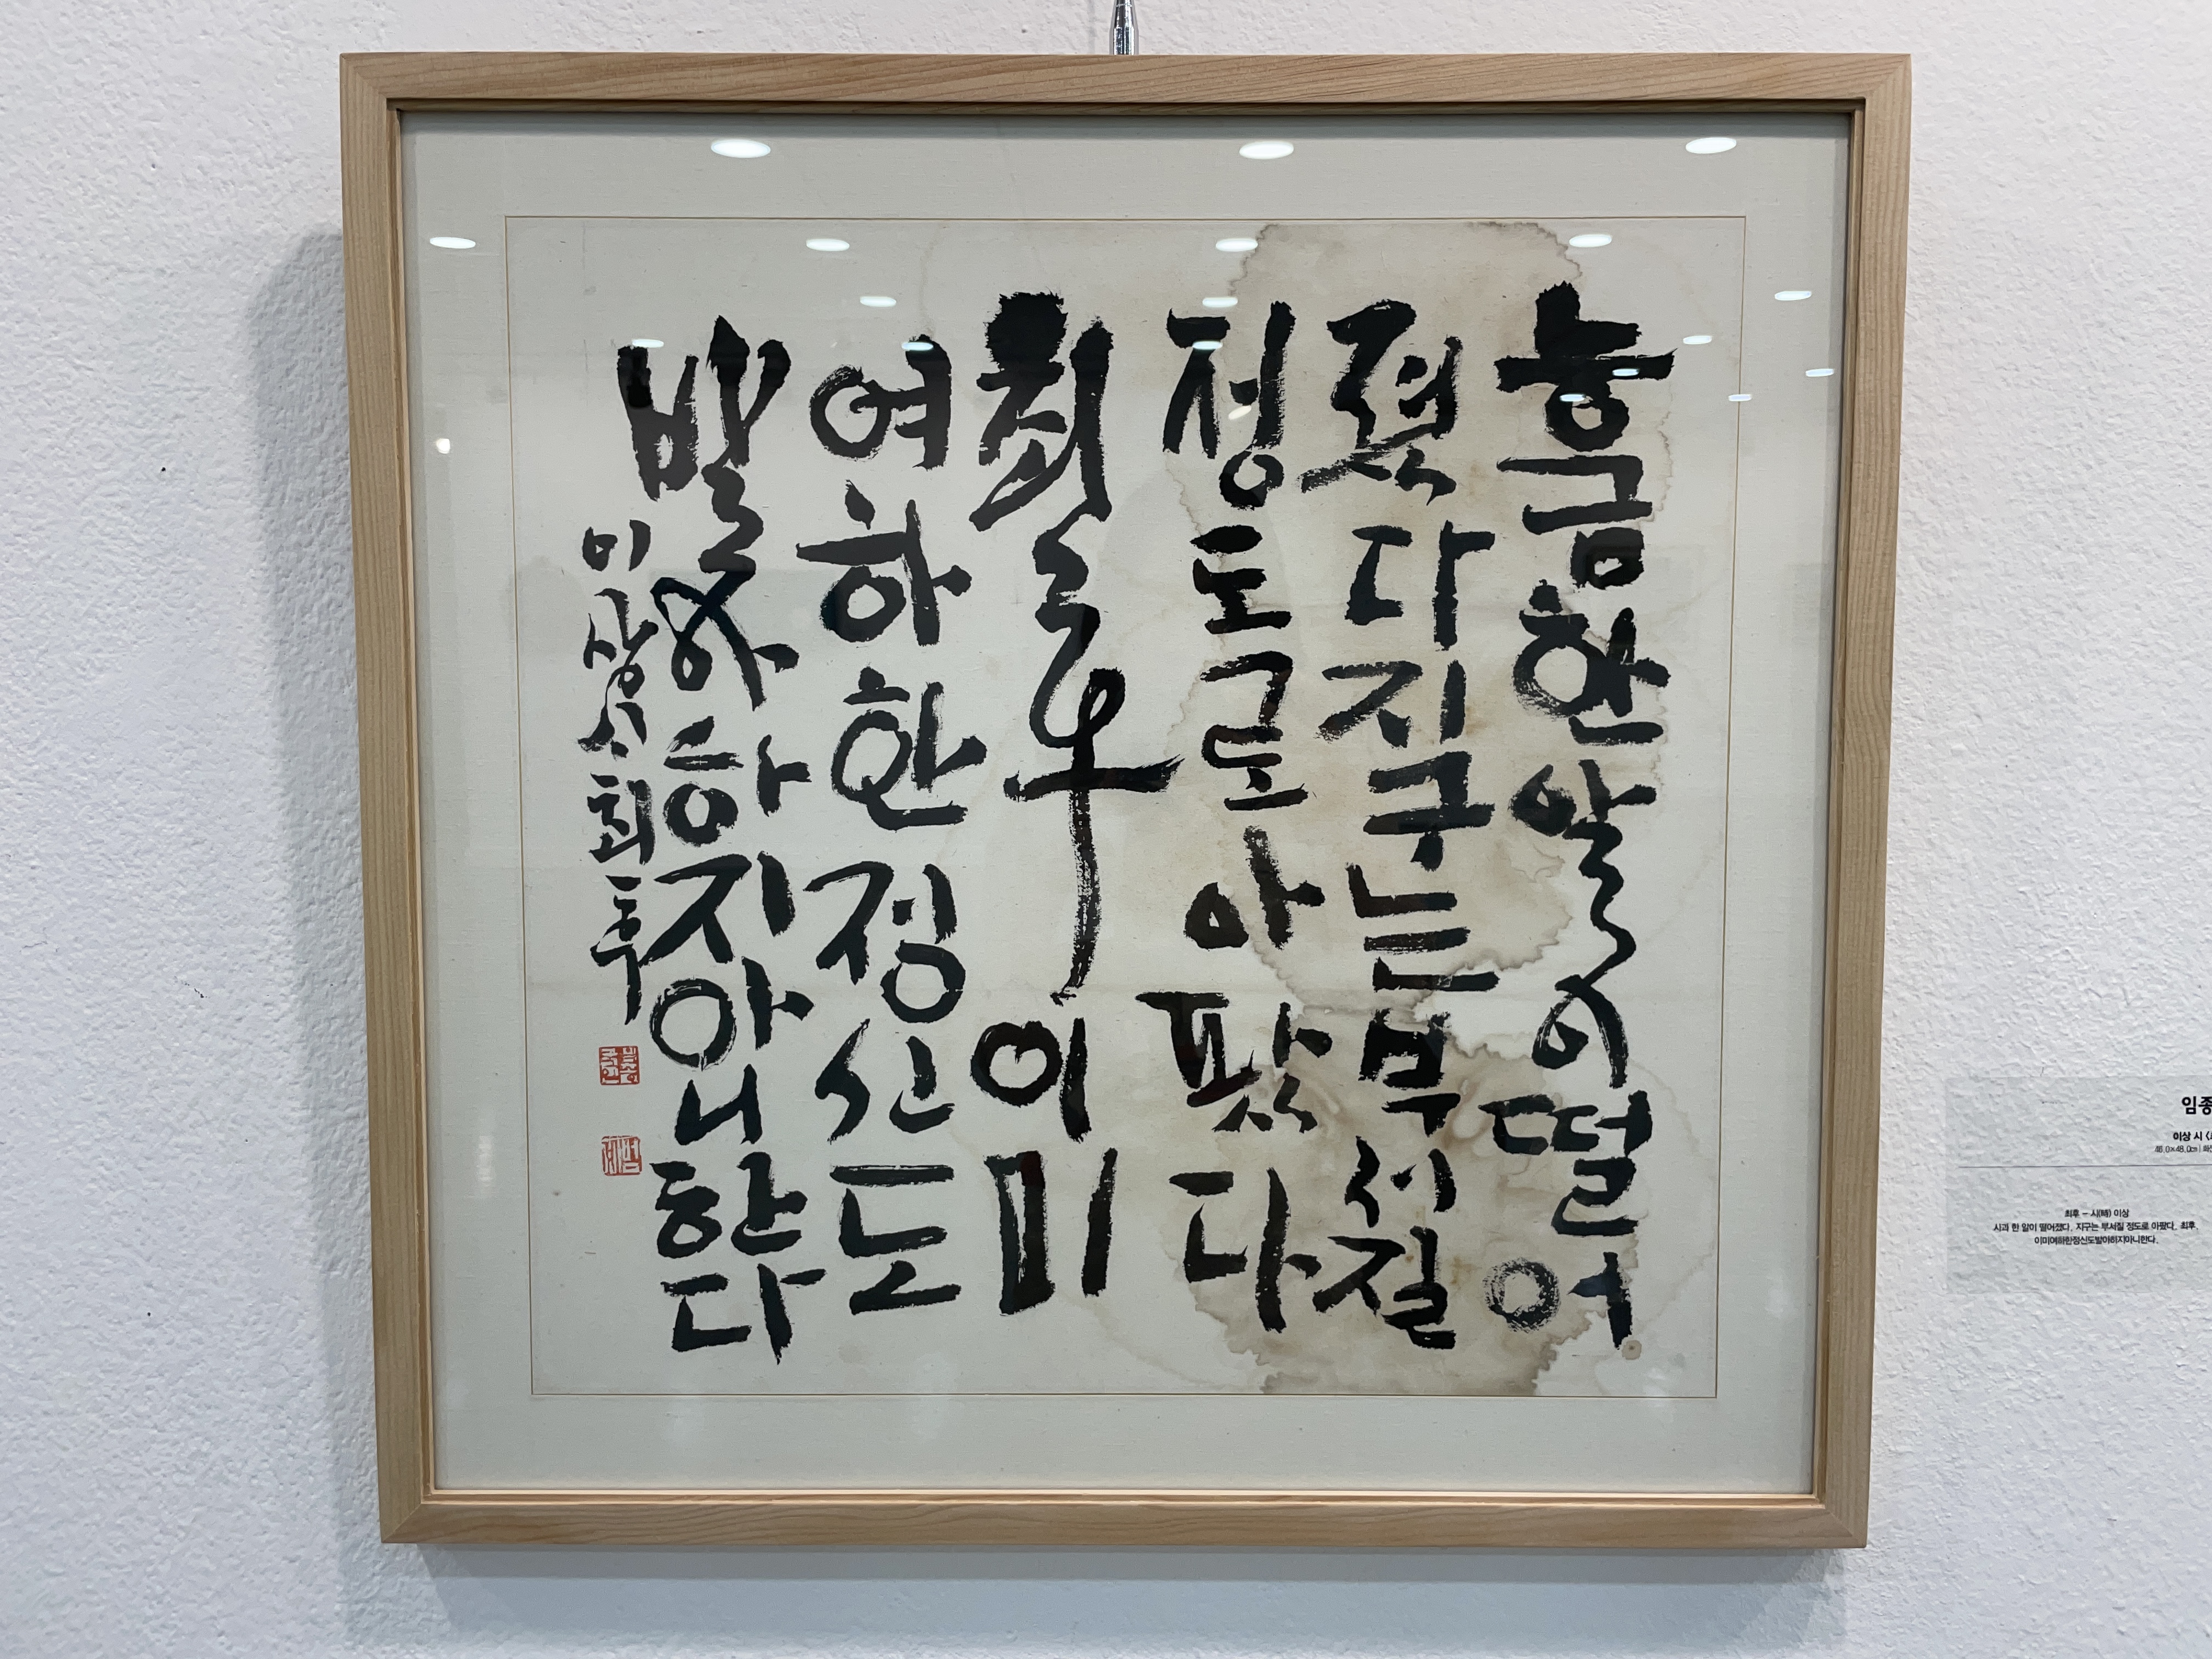 능금한알이떨어
졌다지구는부서질
정도로아팠다
최후이미
여하한정신도
발아하지아니한다
이상시최후
임종
이상 시
48.0cm
최후 - 시(詩) 이상
사과 한 알이 떨어졌다. 지구는 부서질 정도로 아팠다. 최후.
이미여하한정신도발아하지아니한다.